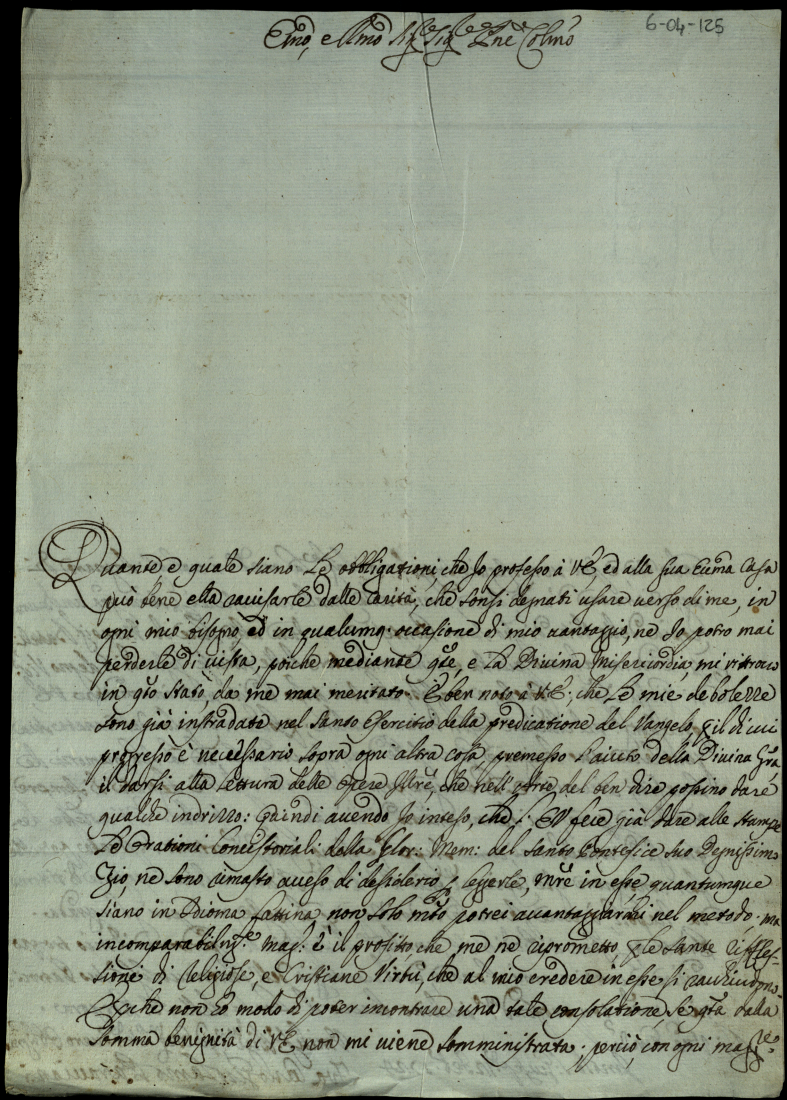 6-04-125
Emō, e Rmō Sig.re Sig.re Pne Colmō
Quante e quale siano le obbligationi, che Io professo à VE, ed alla sua Eccma Casa
può bene ella ravisarle dalle carità, che sonsi degnati usare verso di me, in
ogni mio bisogno, ed in qualumq. occasione di mio vantaggio, ne Io potrò mai
perderle di vista, poiche mediante qste, e la Divina Misericordia, mi ritrovo
in qsto stato, da me mai meritato. È ben noto à VE, che le mie debolezze
sono già instradate nel santo Esercitio della predicatione del Vangelo, p il di cui
progresso è necessario sopra ogni altra cosa, premesso l'aiuto della Divina Gra
il darsi alla lettura delle Opere, che nell'Arte del ben dire possino dare
qualche indrizzo: Quindi avendo Io inteso, che VE fece già dare alle stampe
le Orationi Concistoriali della Glor: Mem: del Santo Pontefice suo Degnissimo
Zio, ne sono rimasto acceso di desiderio p leggerle, mtre in esse quantumque
siano in Idioma Lattina non solo mto potrei avantaggiarmi nel metodo, ma
incomparabilmte. mag: è il profitto, che me ne riprometto p le sante rifles-
sione di Religiose, e Cristiane Virtù, che al mio credere in esse si racchiudono.
E pche non hò modo di poter incontrare una tale consolatione, se qsta dalla
somma benignità di VE non mi viene somministrata, perciò, con ogni magre.